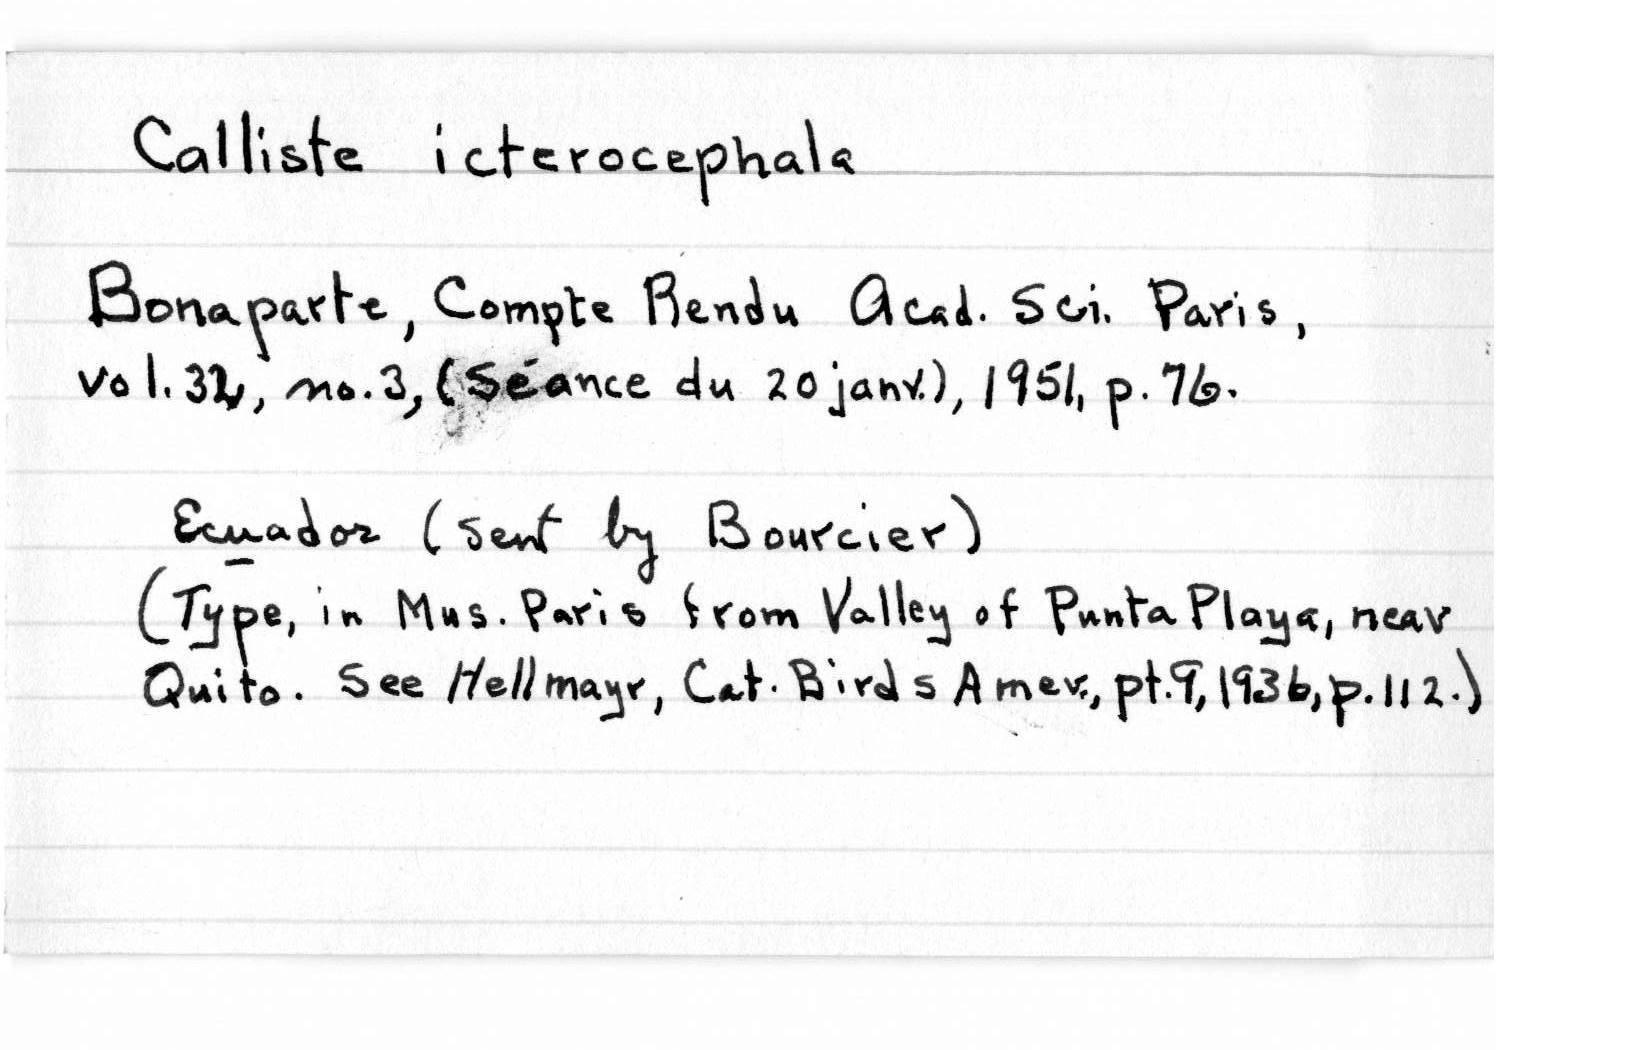 Calliste icterocephala
Bonaparte, Compte Rendu Acad. Sci. Paris,
vol. 32, no. 3, (Séance du 20 janv.), 1951, p. 76.
Ecuador (sent by Bourcier)
(Type, in Mus. Paris from Valley of Punta Playa, near
Quito. See Hellmayr, Cat. Birds Amer., pt. 9, 1936, p. 112.)